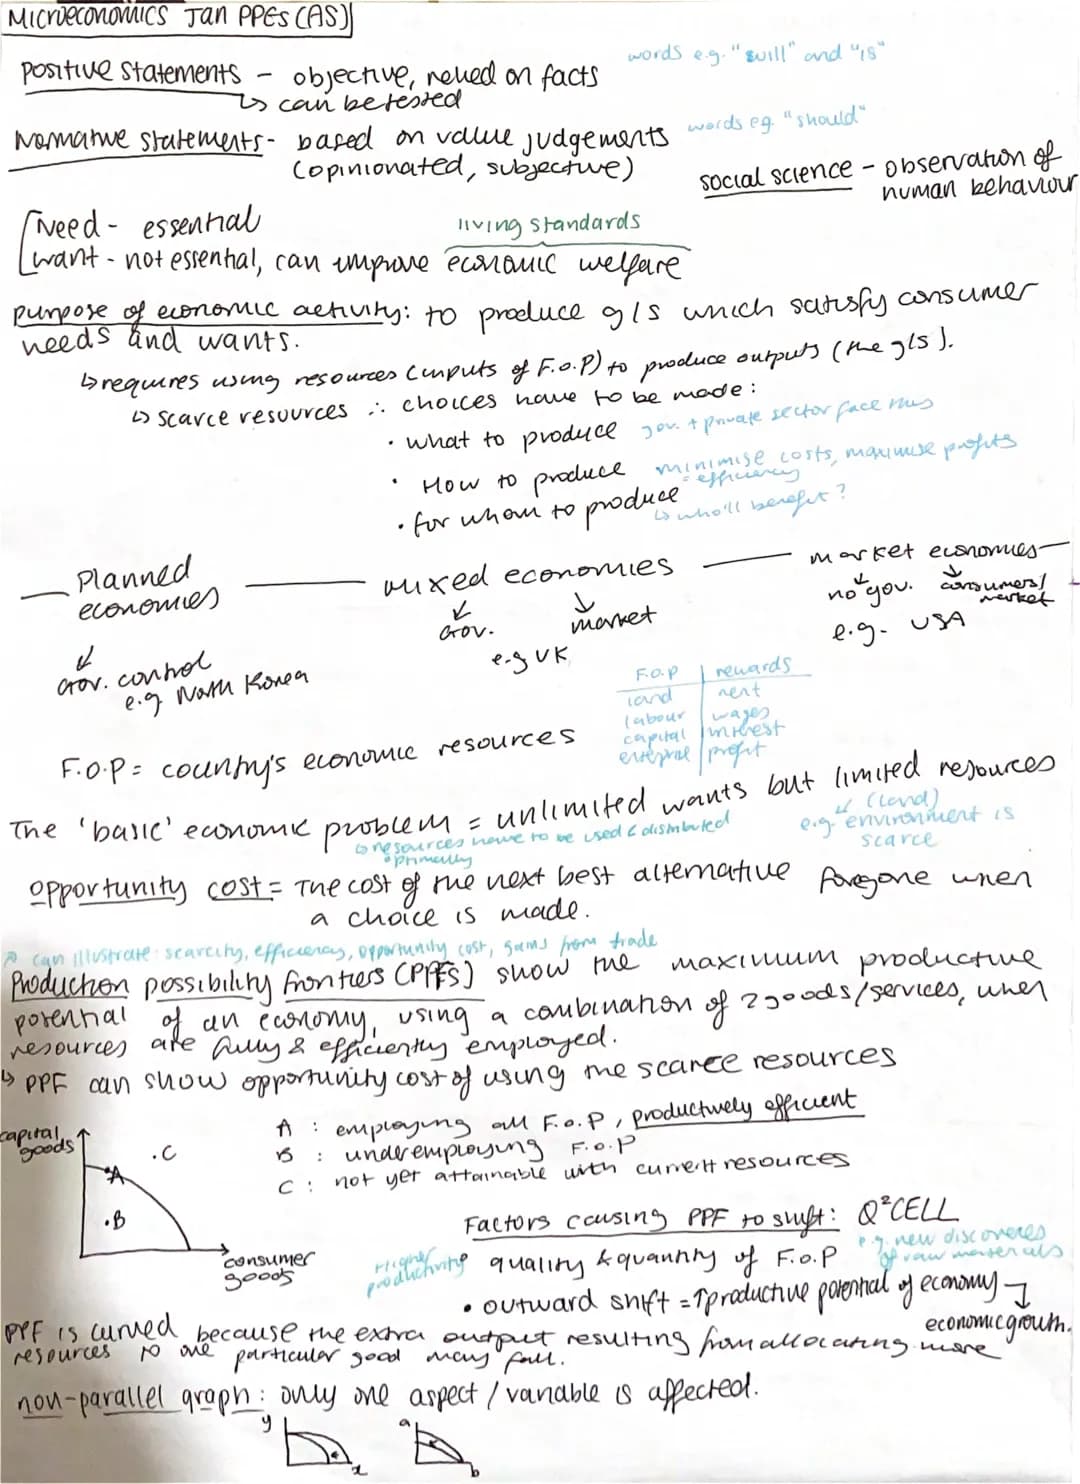 MICROECONOMICS Jan PPES (AS)
words e.g. "will" and "is"
positive statements - objective, relied on facts
↳ can be tested
words eg. "should"
Normative statements - based on value judgements
(opinionated, subjective)
social science - observation of
human behaviour
Need - essential
living standards
want - not essential, can improve economic welfare
purpose of economic activity: to produce g/s which satisfy consumer
needs and wants.
↳ requires using resources (inputs of F.o.P) to produce outputs (the g/s).
↳ scarce resources ∴ choices have to be made:
• what to produce gov. + private sector face this
• How to produce minimise costs, maximise profits
= efficiency
• for whom to produce
↳ who'll benefit?
Planned economies — mixed economies — market economies
↙ Gov. control
e.g North Korea
↙ Gov. ↓ market
e.g UK
↙ no gov. ↓ consumers/
market
e.g. USA
F.o.P | rewards
land | rent
labour | wages
capital | interest
enterprise | profit
F.O.P = country's economic resources
The 'basic' economic problem = unlimited wants but limited resources
↳ resources have to be used & distributed
optimally
↙ (land)
e.g. environment is
scarce
opportunity cost = The cost of the next best alternative foregone when
a choice is made.
↗ can illustrate: scarcity, efficiency, opportunity cost, gains from trade
Production possibility frontiers (PPFs) show the maximum productive
potential of an economy, using a combination of 2 goods/services, when
resources are fully & efficiently employed.
↳ PPF can show opportunity cost of using the scarce resources
capital
goods
.C
A
.B
consumer
goods
A : employing all F.o.P, productively efficient
B : underemploying F.o.P
C : not yet attainable with current resources
Factors causing PPF to shift: Q²CELL
Higher
productivity
quality & quantity of F.o.P
e.g. new discoveries
of raw materials
• outward shift = ↑productive potential of economy
economic growth.
PPF is curved because the extra output resulting from allocating more
resources to one particular good may fall.
non-parallel graph: only one aspect / variable is affected.
y
x
a
b